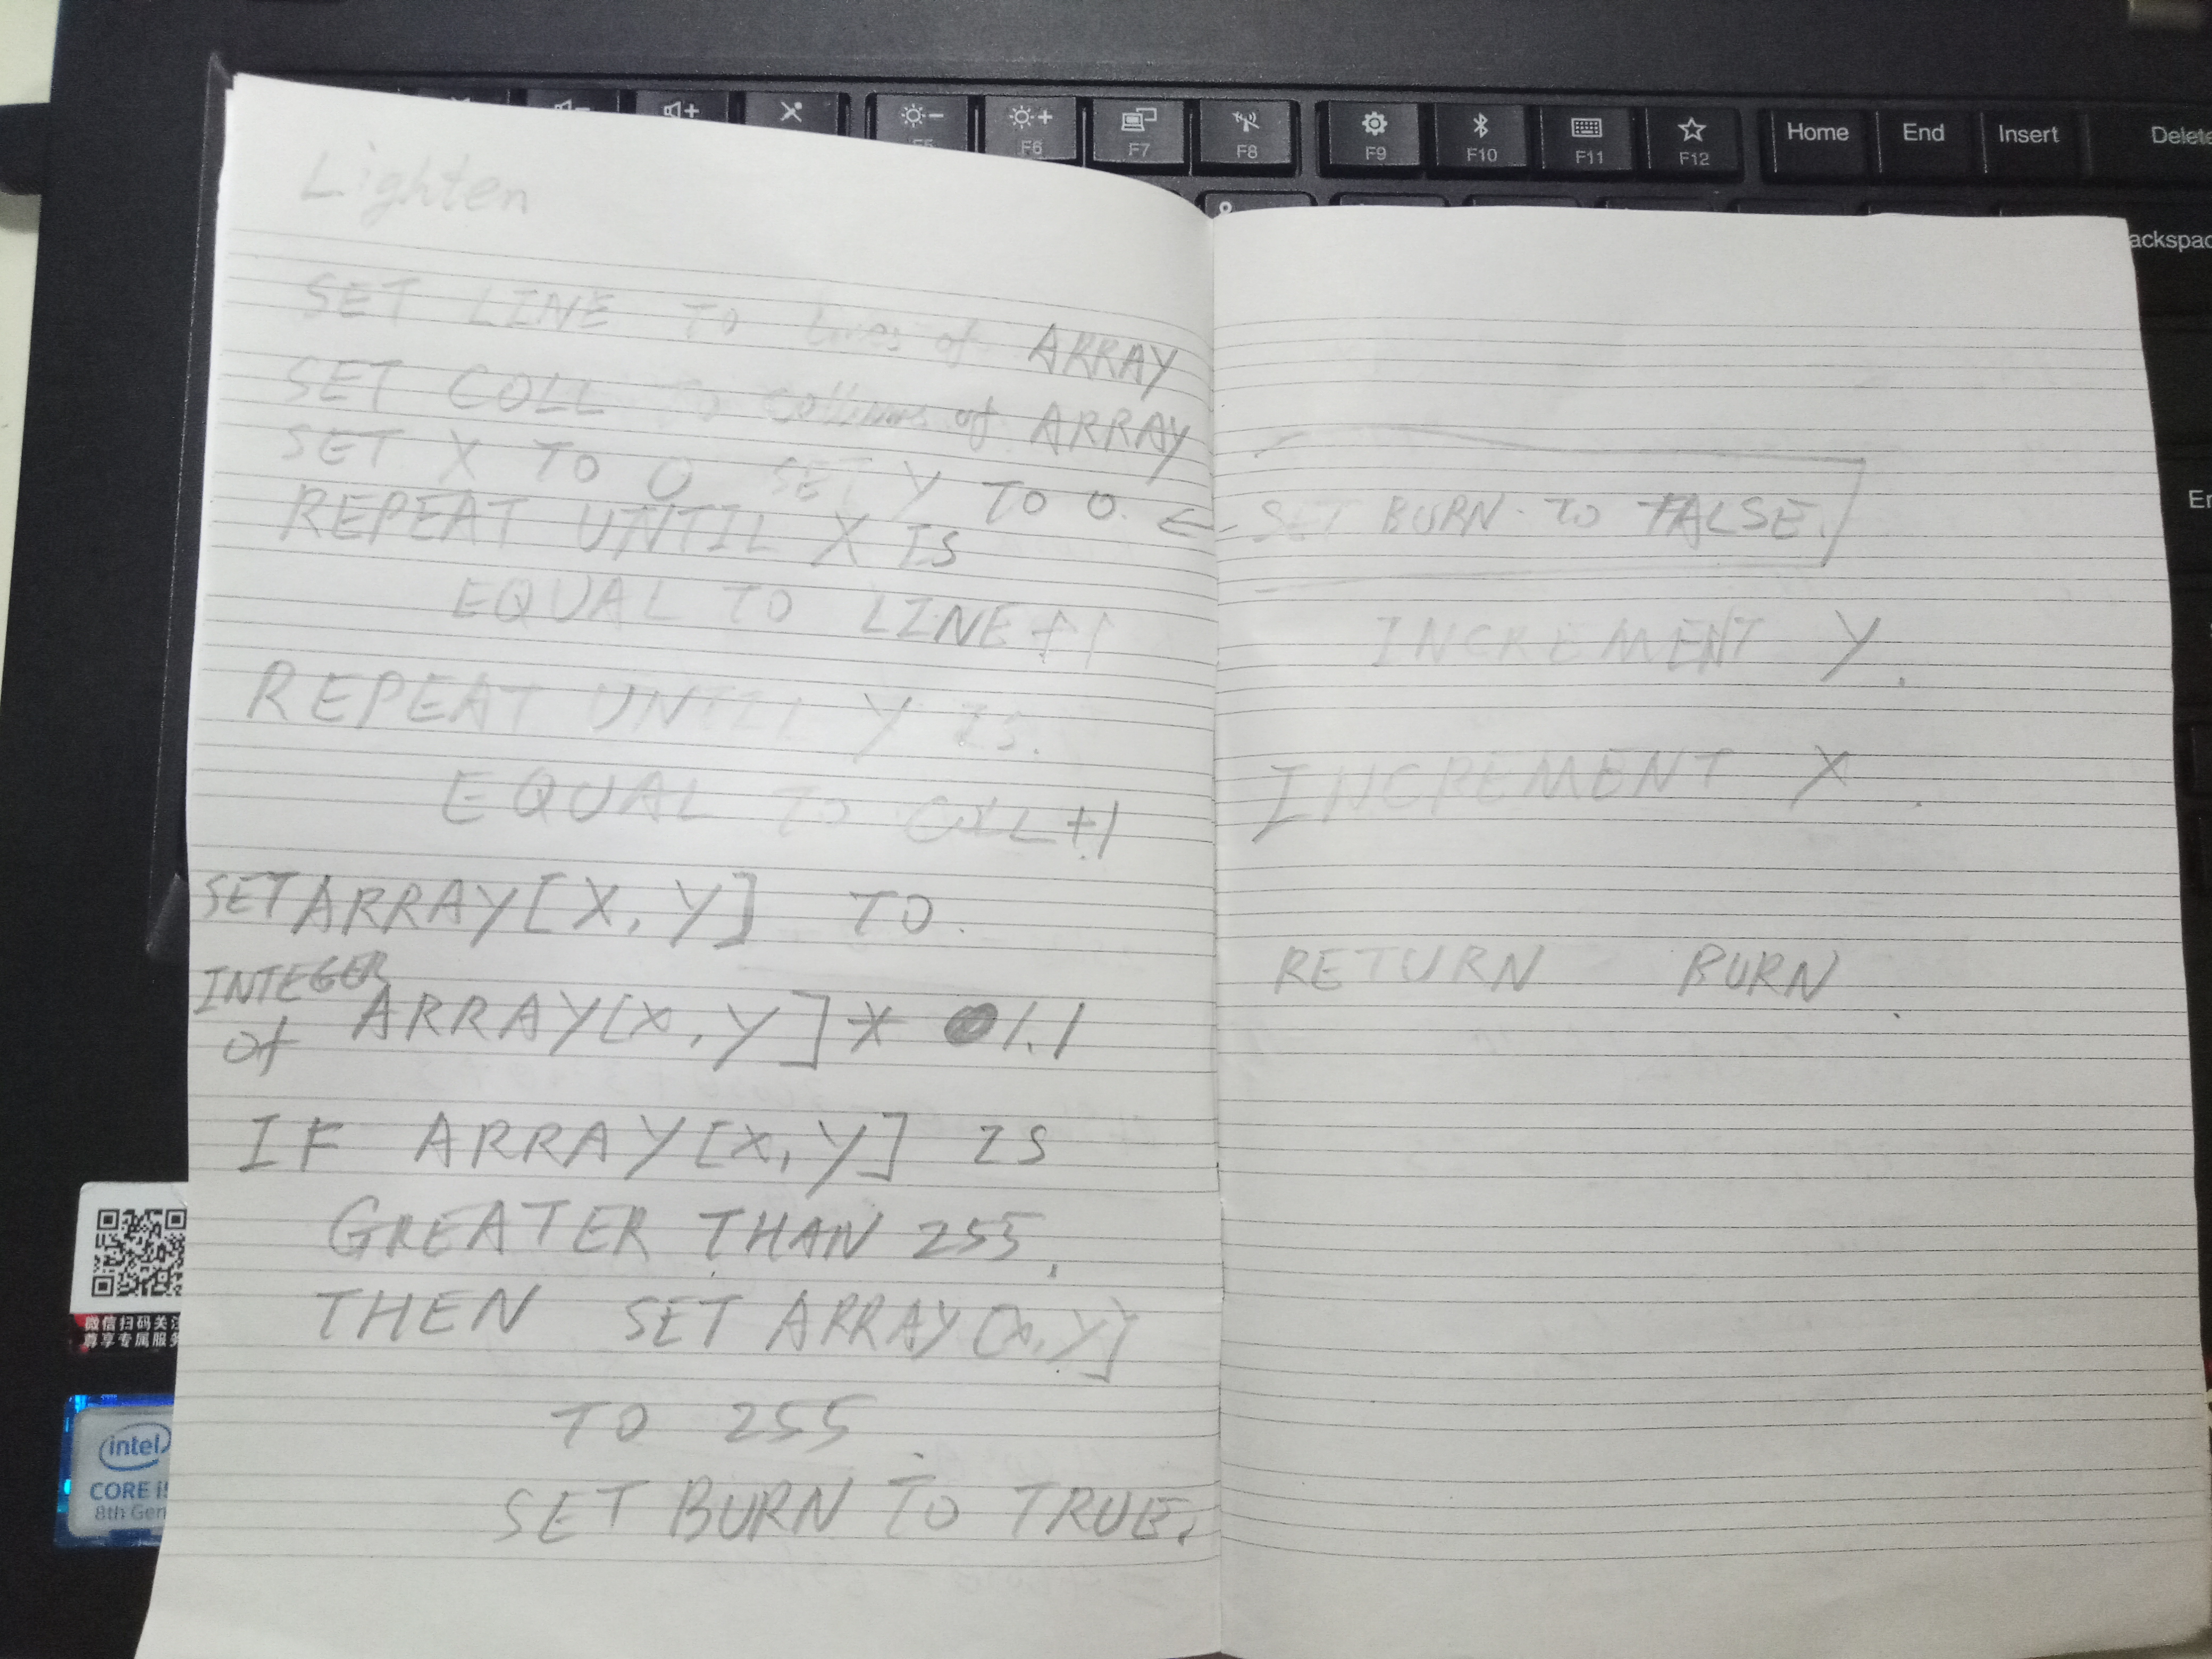 F5
F6
F7
F8
F9
F10
F11
F12
Home
End
Insert
Delete
Lighten
SET LINE TO lines of ARRAY
SET COLL TO collums of ARRAY
SET X TO 0 SET Y TO 0.
REPEAT UNTIL X IS
EQUAL TO LINE+1
REPEAT UNTIL Y IS.
EQUAL TO COLL+1
SET ARRAY[X, Y] TO
INTEGER
of ARRAY[X, Y] * 1.1
IF ARRAY[X, Y] IS
GREATER THAN 255,
THEN SET ARRAY[X, Y]
TO 255
SET BURN TO TRUE.
← SET BURN TO FALSE.
INCREMENT Y.
INCREMENT X.
RETURN BURN.
ackspac
En
微信扫码关注
尊享专属服务
intel
CORE i5
8th Gen